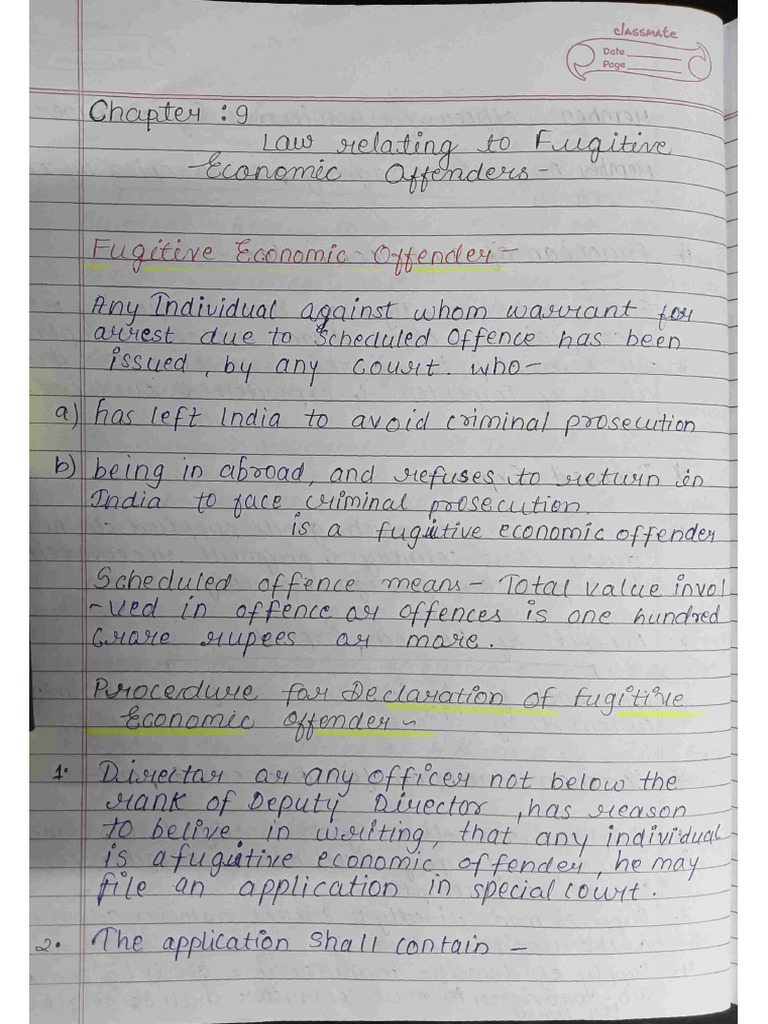 classmate
Date
Page
Chapter : 9
Law relating to Fugitive
Economic Offenders -
Fugitive Economic Offender -
Any Individual against whom warrant for
arrest due to Scheduled Offence has been
issued, by any court. who -
a) has left India to avoid criminal prosecution
b) being in abroad, and refuses to return in
India to face criminal prosecution.
is a fugitive economic offender
Scheduled offence means - Total value invol
-ved in offence or offences is one hundred
Crore rupees or more.
Procedure for Declaration of fugitive
Economic offender ~
1. Director or any officer not below the
rank of Deputy Director, has reason
to belive in writing, that any individual
is a fugitive economic offender, he may
file an application in special court.
2. The application shall contain -